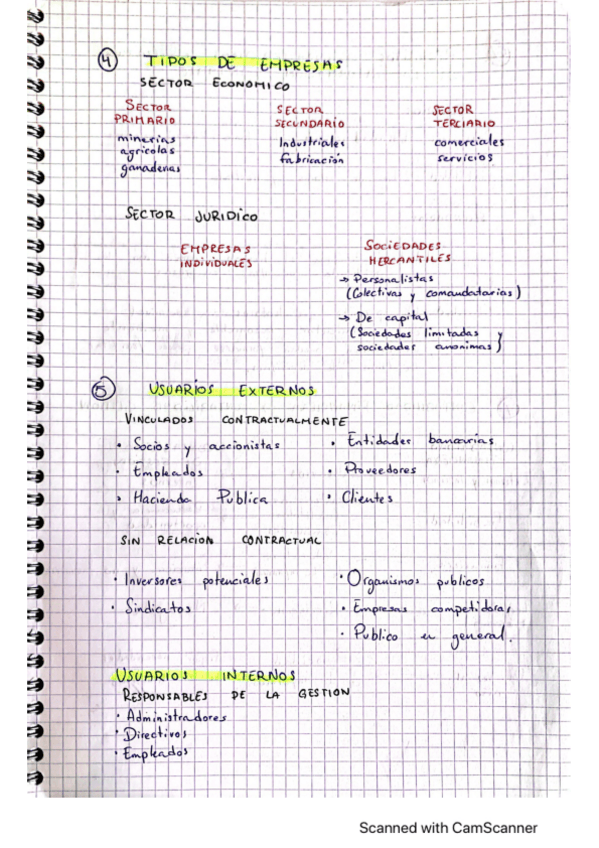 4 TIPOS DE EMPRESAS
SECTOR ECONOMICO
SECTOR PRIMARIO
minerias
agricolas
ganaderias
SECTOR SECUNDARIO
Industriales
fabricación
SECTOR TERCIARIO
comerciales
servicios
SECTOR JURIDICO
EMPRESAS INDIVIDUALES
SOCIEDADES MERCANTILES
→ Personalistas
(Colectivas y comandatarias)
→ De capital
(Sociedades limitadas y
sociedades anonimas)
5 USUARIOS EXTERNOS
VINCULADOS CONTRACTUALMENTE
• Socios y accionistas
• Empleados
• Hacienda Publica
• Entidades bancarias
• Proveedores
• Clientes
SIN RELACION CONTRACTUAL
• Inversores potenciales
• Sindicatos
• Organismos publicos
• Empresas competidoras
• Publico en general.
USUARIOS INTERNOS
RESPONSABLES DE LA GESTION
• Administradores
• Directivos
• Empleados
Scanned with CamScanner